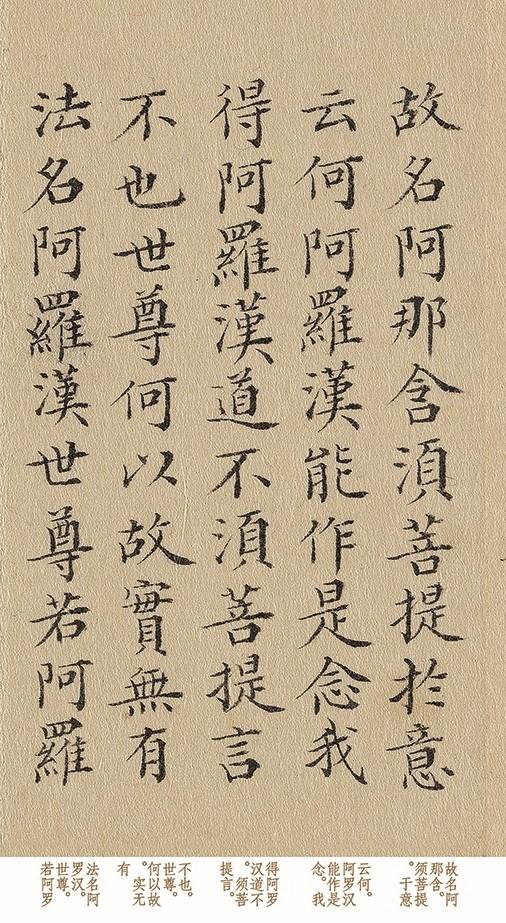 故名阿那含須菩提於意
云何阿羅漢能作是念我
得阿羅漢道不須菩提言
不也世尊何以故實無有
法名阿羅漢世尊若阿羅
故名阿
那含。
须菩提
。于意
云何。
阿罗汉
能作是
念。我
得阿罗
汉道不
。须菩
提言。
不也。
世尊。
何以故
。实无
有
法名阿
罗汉。
世尊。
若阿罗